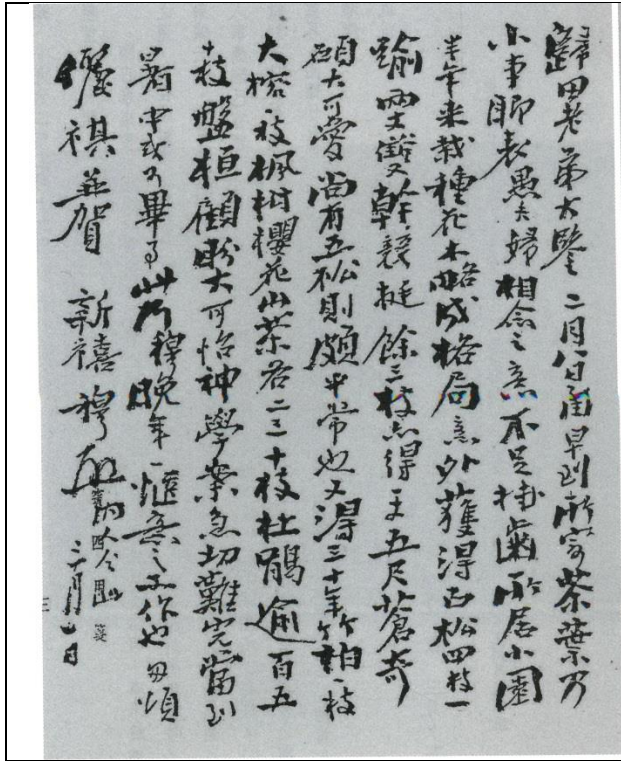 歸田老弟大鑒二月八日函早到所寄茶葉乃
小事聊表愚夫婦相念之意不足掛齒所居小園
半年來栽種花木略成格局意外獲得古松四枝一
踰兩丈餘幹競挺餘三枝亦得五尺蒼奇
碩大可愛尚有五松則頗平常也又得三十年竹柏一枝
大榕一枝楓樹櫻花山茶各二三十枝杜鵑逾百五
十枝盤桓顧盼大可怡神學業急切難完當到
暑中或可畢事此乃穆晚年一愜意之工作也即頌
儷祺並賀 新禧 穆啟
內人囑筆
二月十日